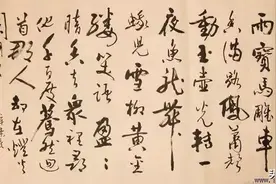 雨寶馬雕車
香滿路鳳簫聲
動玉壺光轉一
夜魚龍舞
蛾兒雪柳黃金
縷笑語盈盈
暗香去眾裡尋
他千百度驀然迴
首那人却在燈火